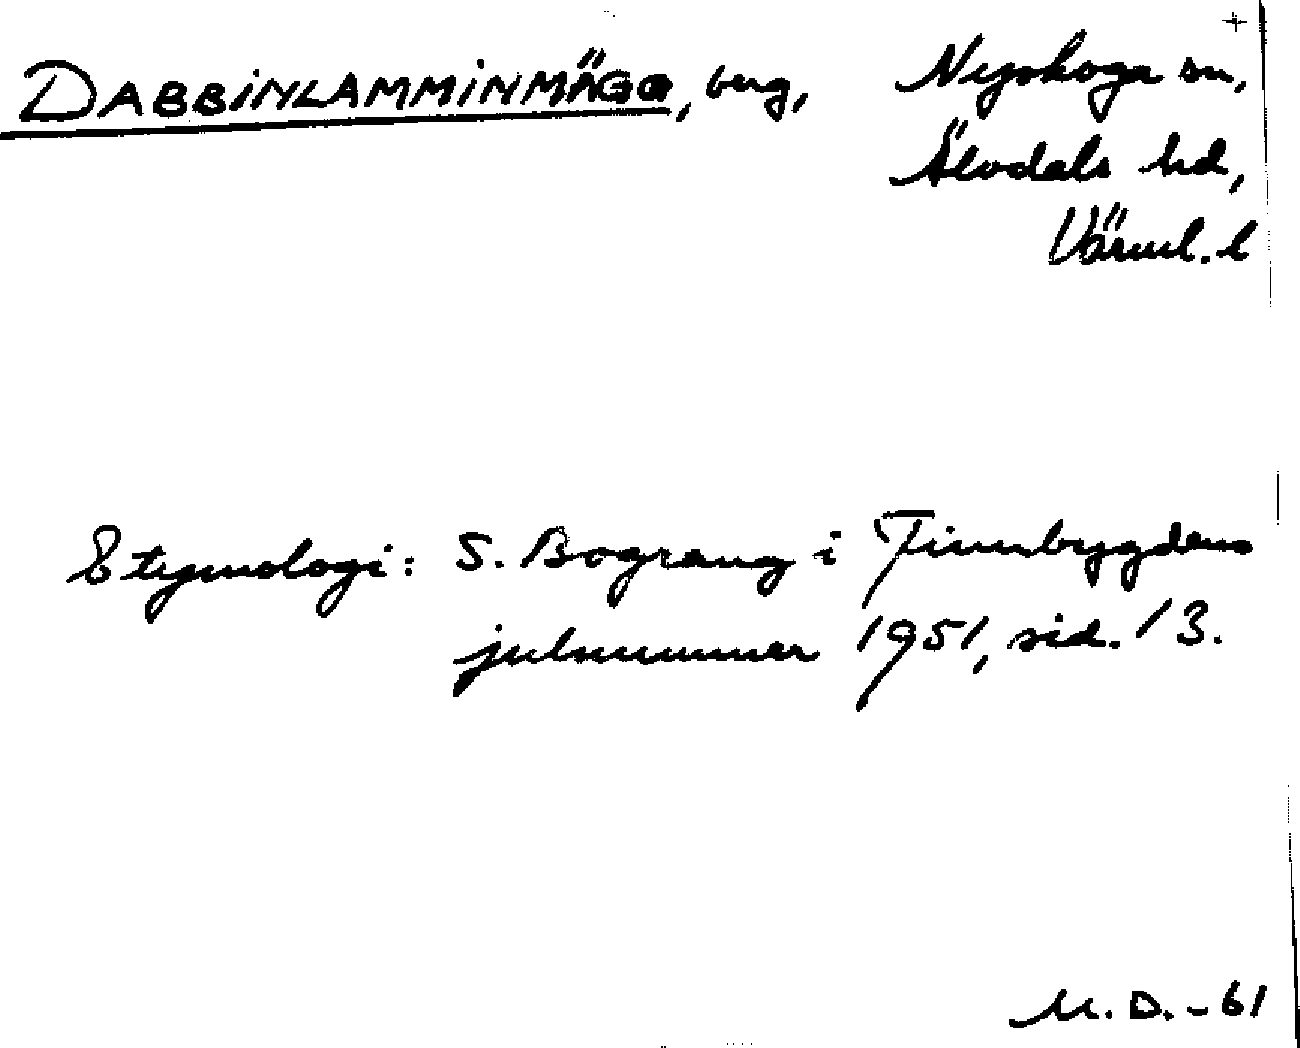 DABBINLAMMINMÄGG, berg, Nyskoga sn,
Älvdals hd,
Värml. l
Etymologi: S. Bograng i Finnbygdens
julnummer 1951, sid. 13.
M. D. - 61